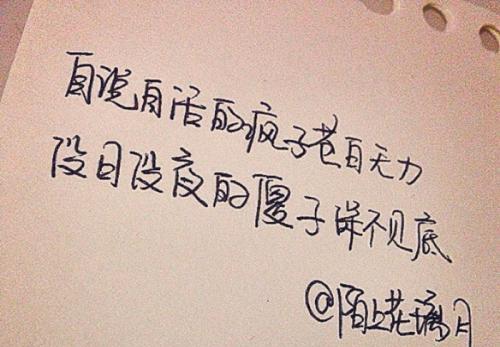 自说自话的疯子苍白无力
没日没夜的傻子深不见底
@陌上花璃月